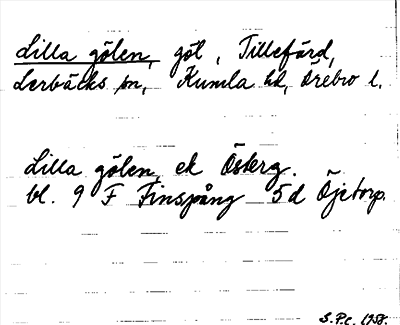 Lilla gölen, göl, Tillefärd,
Lerbäcks sn, Kumla hd, Örebro l.
Lilla gölen ek Österg.
bl. 9 F Finspång 5d Öjetorp.
S.P.c. 1958.